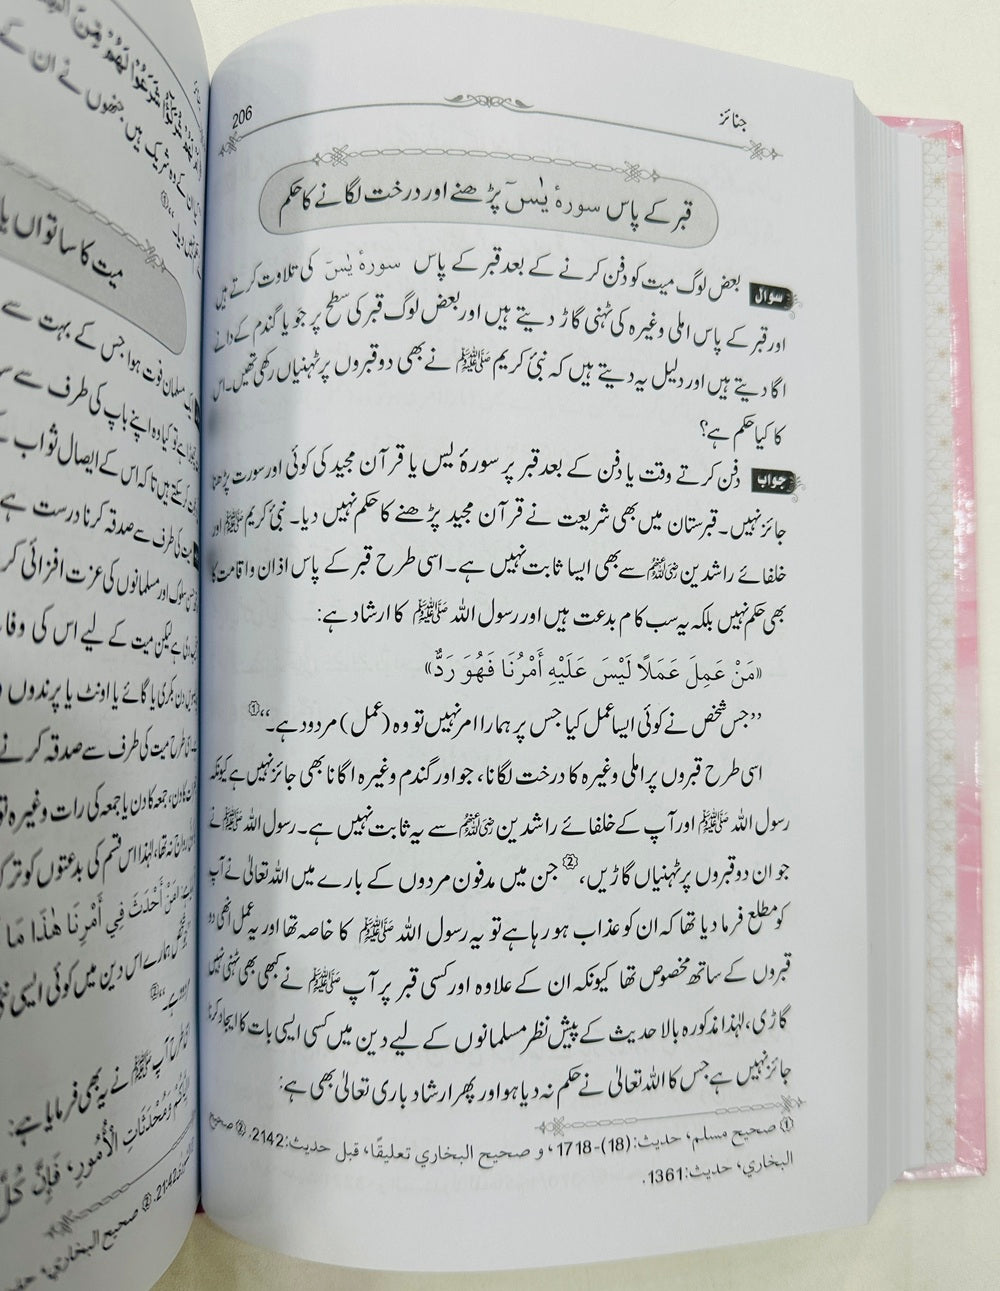 206
جنائز
قبر کے پاس سورۂ یٰسٓ پڑھنے اور درخت لگانے کا حکم
سوال بعض لوگ میت کو دفن کرنے کے بعد قبر کے پاس سورۂ یٰسٓ کی تلاوت کرتے ہیں
اور قبر کے پاس املی وغیرہ کی ٹہنی گاڑ دیتے ہیں اور بعض لوگ قبر کی سطح پر جو یا گندم کے دانے
اگا دیتے ہیں اور دلیل یہ دیتے ہیں کہ نبیٔ کریم ﷺ نے بھی دو قبروں پر ٹہنیاں رکھی تھیں۔ اس
کا کیا حکم ہے؟
جواب دفن کرتے وقت یا دفن کے بعد قبر پر سورۂ یٰس یا قرآن مجید کی کوئی اور سورت پڑھنا
جائز نہیں۔ قبرستان میں بھی شریعت نے قرآن مجید پڑھنے کا حکم نہیں دیا۔ نبیٔ کریم ﷺ اور
خلفائے راشدین رضی اللہ عنہم سے بھی ایسا ثابت نہیں ہے۔ اسی طرح قبر کے پاس اذان و اقامت کا
بھی حکم نہیں بلکہ یہ سب کام بدعت ہیں اور رسول اللہ ﷺ کا ارشاد ہے:
«مَنْ عَمِلَ عَمَلًا لَيْسَ عَلَيْهِ أَمْرُنَا فَهُوَ رَدٌّ»
’’جس شخص نے کوئی ایسا عمل کیا جس پر ہمارا امر نہیں تو وہ (عمل) مردود ہے۔‘‘①
اسی طرح قبروں پر املی وغیرہ کا درخت لگانا، جو اور گندم وغیرہ اگانا بھی جائز نہیں ہے کیونکہ
رسول اللہ ﷺ اور آپ کے خلفائے راشدین رضی اللہ عنہم سے یہ ثابت نہیں ہے۔ رسول اللہ ﷺ نے
جو ان دو قبروں پر ٹہنیاں گاڑیں،② جن میں مدفون مردوں کے بارے میں اللہ تعالیٰ نے آپ
کو مطلع فرما دیا تھا کہ ان کو عذاب ہو رہا ہے تو یہ رسول اللہ ﷺ کا خاصہ تھا اور یہ عمل انھی دو
قبروں کے ساتھ مخصوص تھا کیونکہ ان کے علاوہ اور کسی قبر پر آپ ﷺ نے کبھی بھی ٹہنی نہیں
گاڑی، لہٰذا مذکورہ بالا حدیث کے پیش نظر مسلمانوں کے لیے دین میں کسی ایسی بات کا ایجاد کرنا
جائز نہیں ہے جس کا اللہ تعالیٰ نے حکم نہ دیا ہو اور پھر ارشاد باری تعالیٰ بھی ہے:
① صحيح مسلم، حديث: (18)-1718، و صحيح البخاري تعليقًا، قبل حديث: 2142. ② صحيح
البخاري، حديث: 1361.
میت کا ساتواں یا
مسلمان فوت ہوا جس کے بہت سے
ہے تو کیا وہ اپنے باپ کی طرف سے
ہیں تاکہ اس کے ایصال ثواب
میت کی طرف سے صدقہ کرنا درست ہے
سلوک اور مسلمانوں کی عزت افزائی
ہے لیکن میت کے لیے اس کی وفا
دن بکری یا گائے یا اونٹ یا پرندوں
طرح میت کی طرف سے صدقہ کرنے
دن، جمعہ کا دن یا جمعہ کی رات وغیرہ
نہ تھا، لہٰذا اس قسم کی بدعتوں کو ترک
أَحْدَثَ فِي أَمْرِنَا هٰذَا مَا
ہمارے اس دین میں کوئی ایسی
آپ ﷺ نے یہ بھی فرمایا ہے:
وَمُحْدَثَاتِ الْأُمُورِ، فَإِنَّ كُلَّ
② صحيح البخاري،